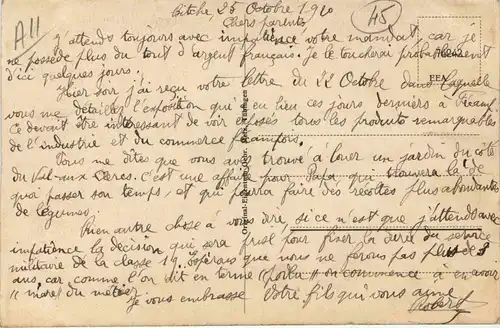 A11
45
Bitche, 25 Octobre 1920
Chers parents
J'attends toujours avec impatience votre mandat, car je
ne possède plus du tout d'argent français. Je le toucherai probablement
d'ici quelques jours.
Hier soir j'ai reçu votre lettre du 22 Octobre dans laquelle
vous me détaillez l'exposition qui a eu lieu ces jours derniers à Fécamp
Ce devait être intéressant de voir exposés tous les produits remarquables
de l'industrie et du commerce français.
Vous me dites que vous avez trouvé à louer un jardin du côté
du Val-aux Clercs. C'est une affaire pour Papa qui trouvera là de
quoi passer son temps, et qui pourra faire des récoltes plus abondantes
de légumes.
Rien autre chose à vous dire, si ce n'est que j'attends avec
impatience la décision qui sera prise pour fixer la durée du service
militaire de la classe 19. J'espérais que nous ne ferons pas plus de 2
ans, car comme l'on dit en terme "poilu" on commence à en avoir
"marre" du métier.
Je vous embrasse Votre fils qui vous aime
Robert
EEA